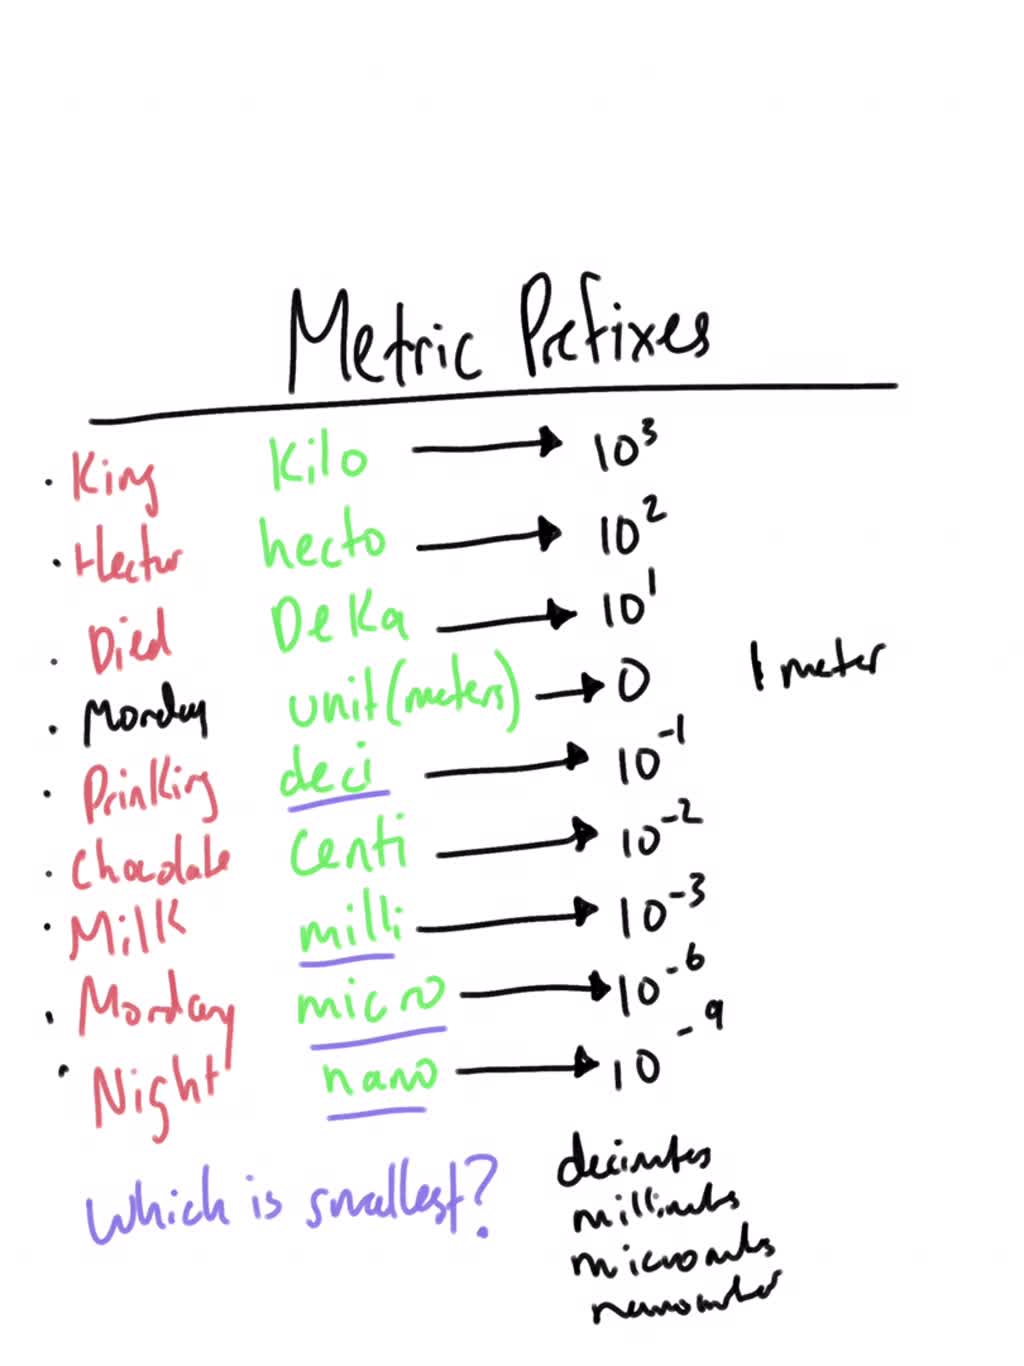 Metric Prefixes
· King Kilo → 10³
· Hector hecto → 10²
· Died Deka → 10¹
· Monday unit (meters) → 0 1 meter
· Drinking deci → 10⁻¹
· Chocolate Centi → 10⁻²
· Milk milli → 10⁻³
· Monday micro → 10⁻⁶
· Night nano → 10⁻⁹
Which is smallest?
decimeters
millimeters
micrometers
nanometer